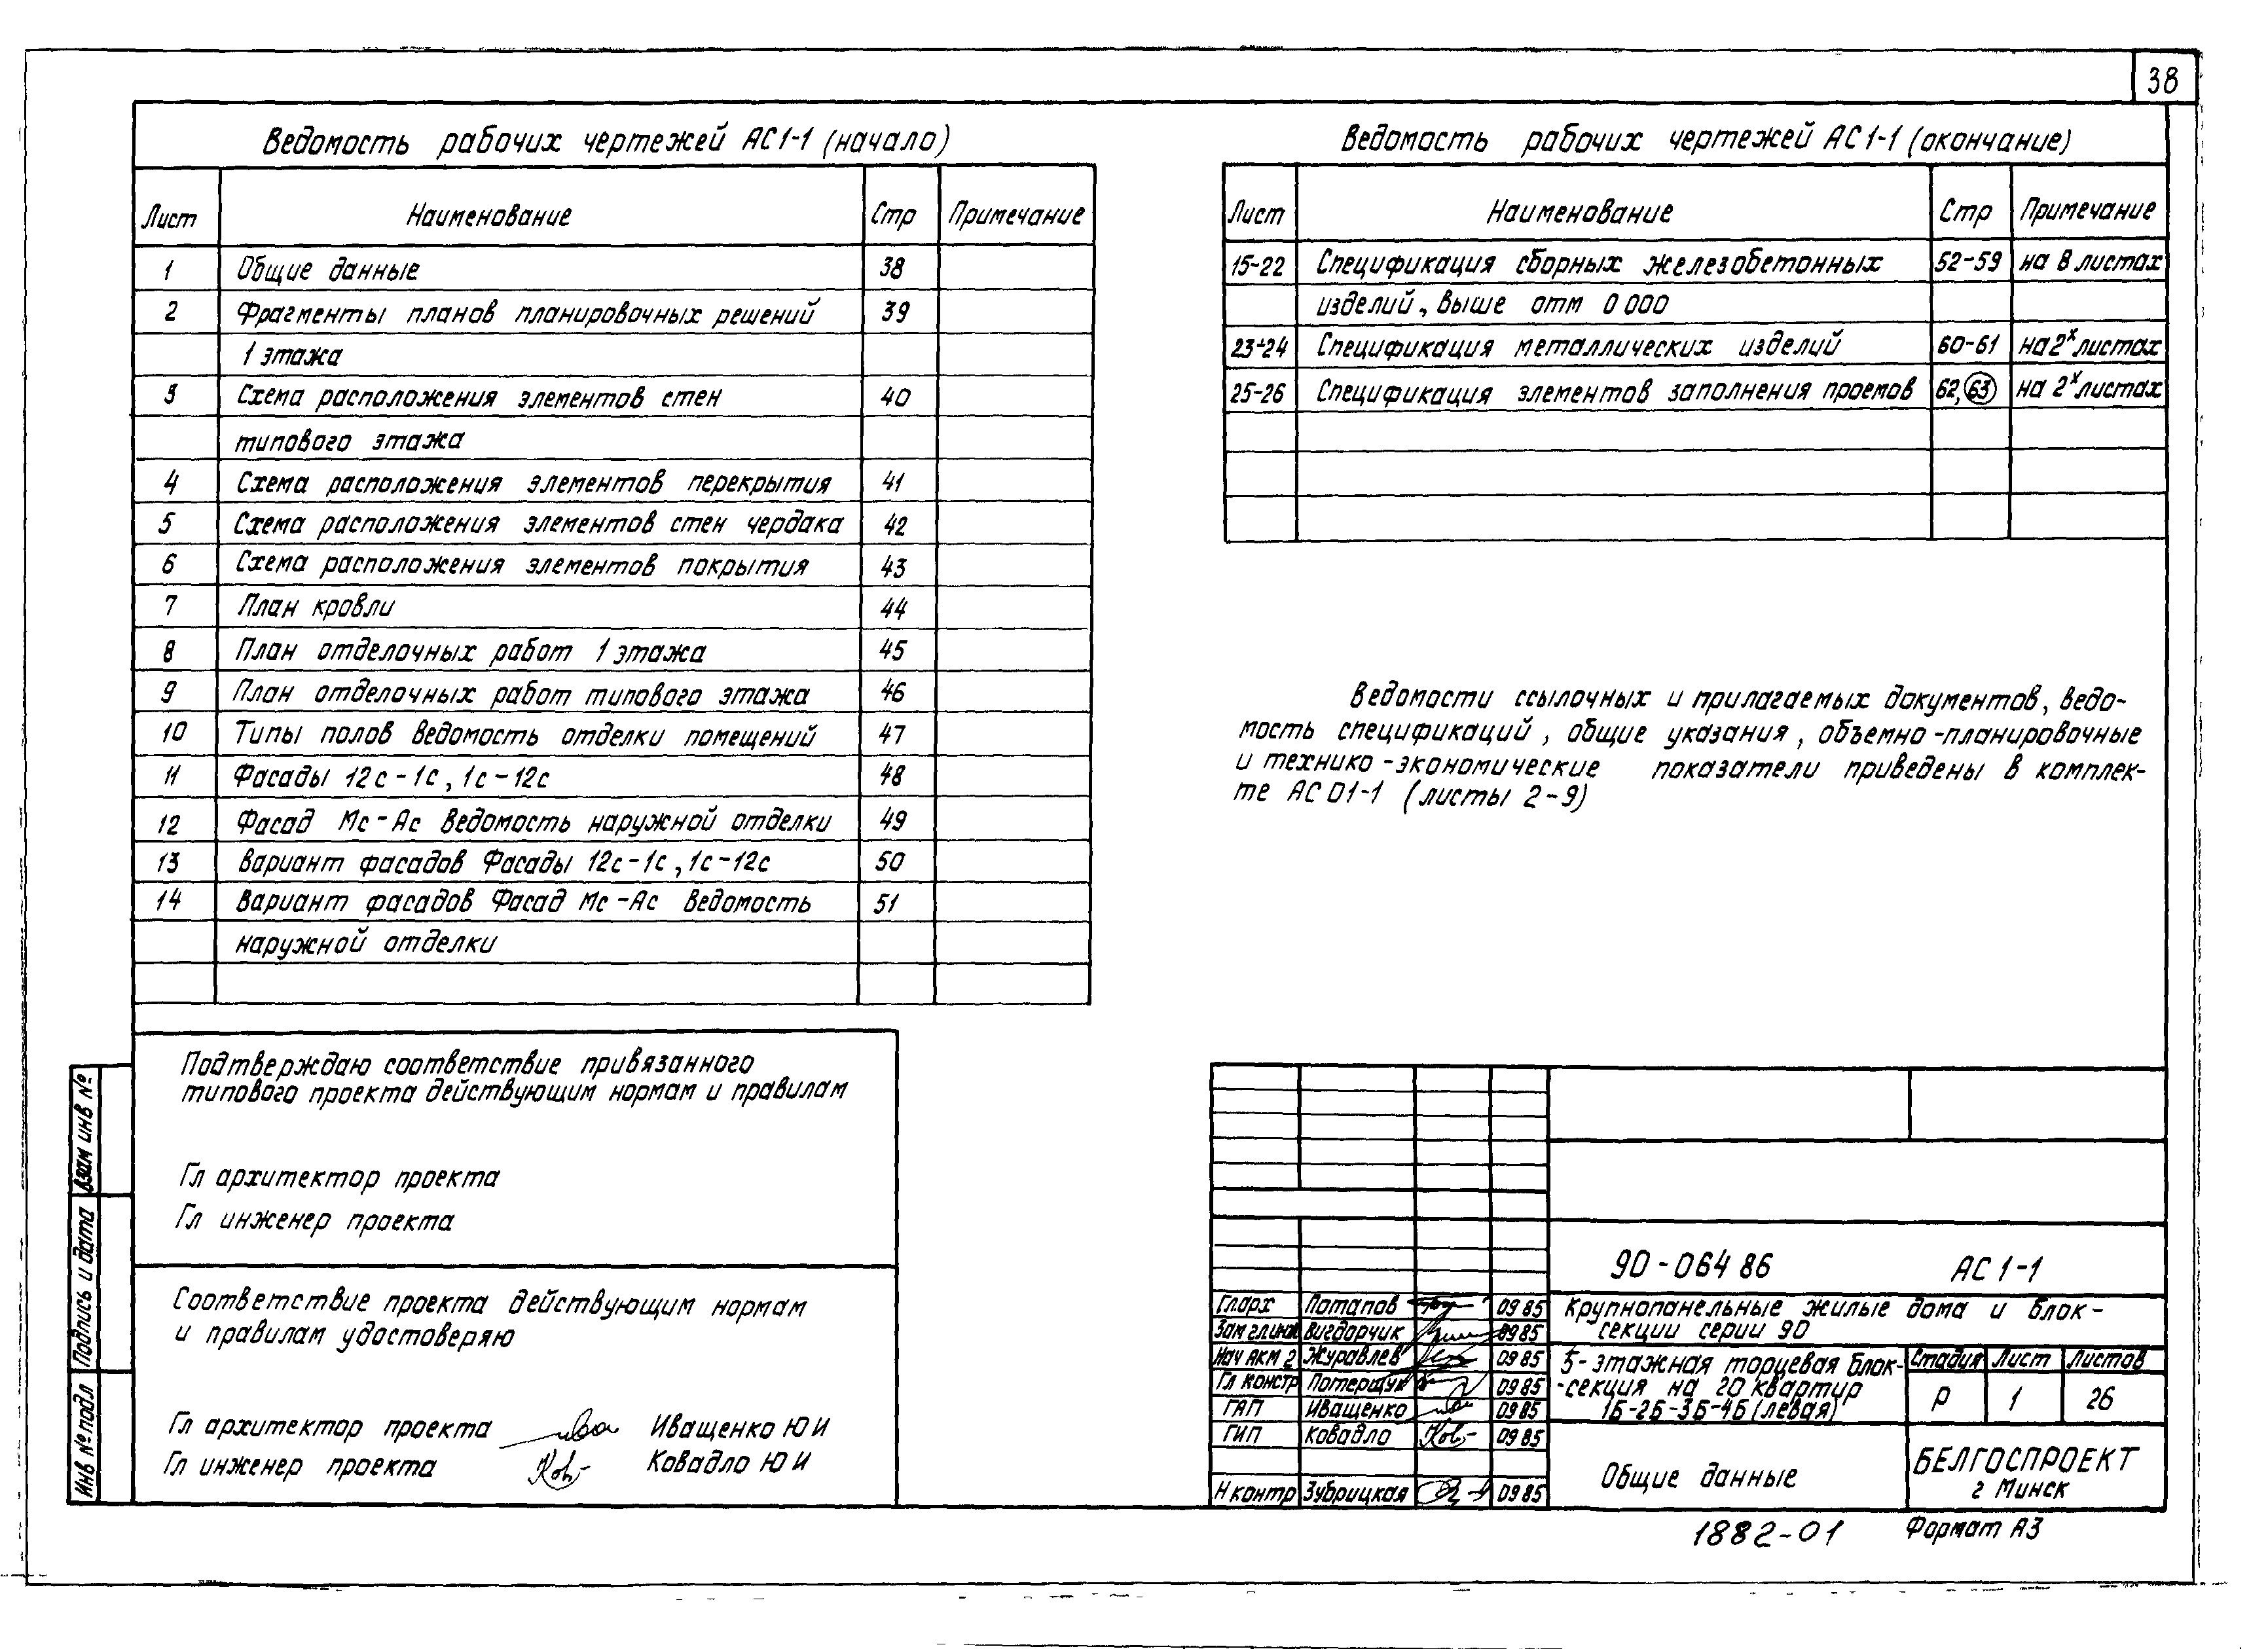 38
Ведомость рабочих чертежей АС1-1 (начало)
Лист Наименование Стр Примечание
1 Общие данные 38
2 Фрагменты планов планировочных решений 39
1 этажа
3 Схема расположения элементов стен 40
типового этажа
4 Схема расположения элементов перекрытия 41
5 Схема расположения элементов стен чердака 42
6 Схема расположения элементов покрытия 43
7 План кровли 44
8 План отделочных работ 1 этажа 45
9 План отделочных работ типового этажа 46
10 Типы полов Ведомость отделки помещений 47
11 Фасады 12с-1с, 1с-12с 48
12 Фасад Мс-Ас Ведомость наружной отделки 49
13 Вариант фасадов Фасады 12с-1с, 1с-12с 50
14 Вариант фасадов Фасад Мс-Ас Ведомость 51
наружной отделки
Ведомость рабочих чертежей АС1-1 (окончание)
Лист Наименование Стр Примечание
15-22 Спецификация сборных железобетонных 52-59 на 8 листах
изделий, выше отм 0 000
23-24 Спецификация металлических изделий 60-61 на 2х листах
25-26 Спецификация элементов заполнения проемов 62, 63 на 2х листах
Ведомости ссылочных и прилагаемых документов, ведо-
мость спецификаций, общие указания, объемно-планировочные
и технико-экономические показатели приведены в комплек-
те АС 01-1 (листы 2-9)
Подтверждаю соответствие привязанного
типового проекта действующим нормам и правилам
Гл архитектор проекта
Гл инженер проекта
Соответствие проекта действующим нормам
и правилам удостоверяю
Гл архитектор проекта Иващенко Ю И
Гл инженер проекта Ковадло Ю И
Инв № подл Подпись и дата Взам инв №
90-064 86 АС 1-1
Гл арх Потапов 09 85
Зам гл инж Вигдорчик 09 85
Нач АКМ 2 Журавлев 09 85
Гл констр Потерщук 09 85
ГАП Иващенко 09 85
ГИП Ковадло 09 85
Н контр Зубрицкая 09 85
Крупнопанельные жилые дома и блок-
секции серии 90
5-этажная торцевая блок-
-секция на 20 квартир
1Б-2Б-3Б-4Б (левая)
Стадия Лист Листов
Р 1 26
Общие данные
БЕЛГОСПРОЕКТ
г Минск
1882-01 Формат А3